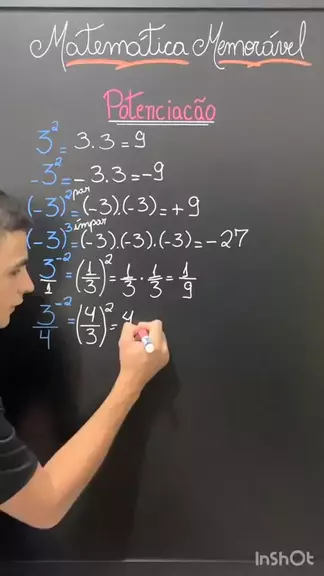 Matemática Memorável
Potenciação
3² = 3.3 = 9
-3² = -3.3 = -9
(-3)² par = (-3).(-3) = +9
(-3)³ ímpar = (-3).(-3).(-3) = -27
3⁻²/1 = (1/3)² = 1/3 · 1/3 = 1/9
3⁻²/4 = (4/3)² = 4
InShOt